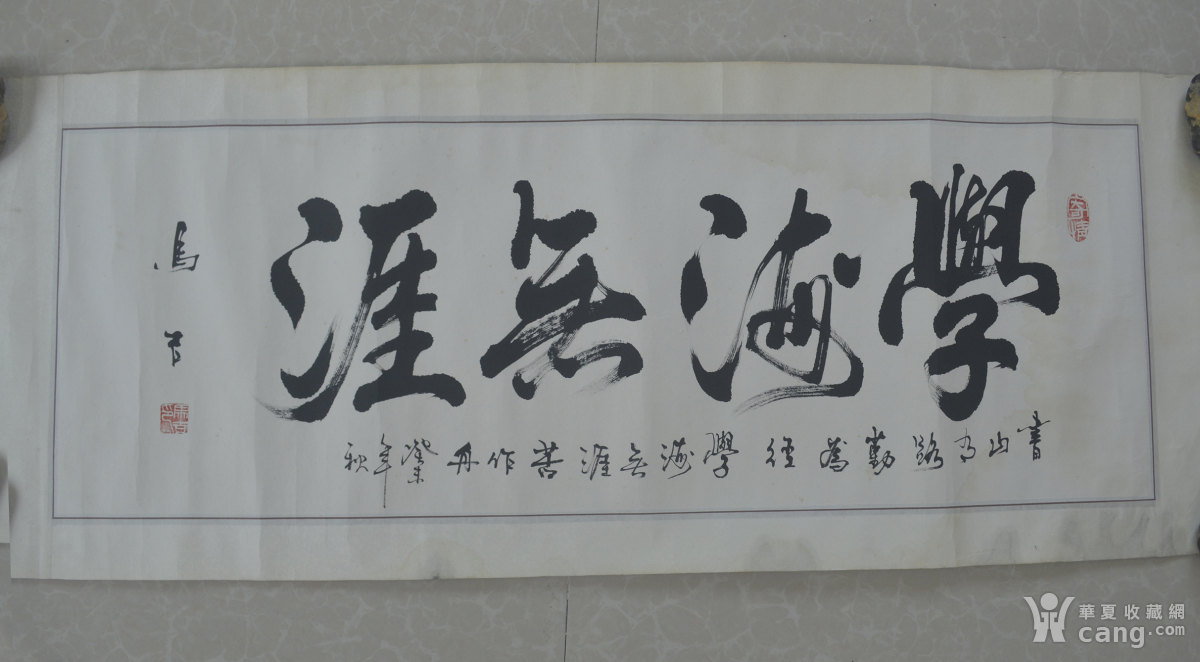 學海無涯
書山有路勤為徑 學海無涯苦作舟 癸未年秋
馬
華夏收藏網
cang.com